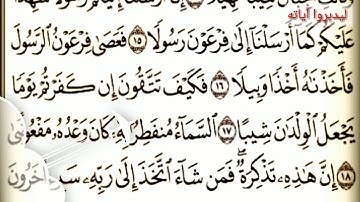 ليدبروا آياته
عَلَيْكُمْ كَمَآ أَرْسَلْنَآ إِلَىٰ فِرْعَوْنَ رَسُولًا ١٥ فَعَصَىٰ فِرْعَوْنُ ٱلرَّسُولَ
فَأَخَذْنَٰهُ أَخْذًا وَبِيلًا ١٦ فَكَيْفَ تَتَّقُونَ إِن كَفَرْتُمْ يَوْمًا
يَجْعَلُ ٱلْوِلْدَٰنَ شِيبًا ١٧ ٱلسَّمَآءُ مُنفَطِرٌۢ بِهِۦ ۚ كَانَ وَعْدُهُۥ
١٨ إِنَّ هَٰذِهِۦ تَذْكِرَةٌ ۖ فَمَن شَآءَ ٱتَّخَذَ إِلَىٰ رَبِّهِۦ